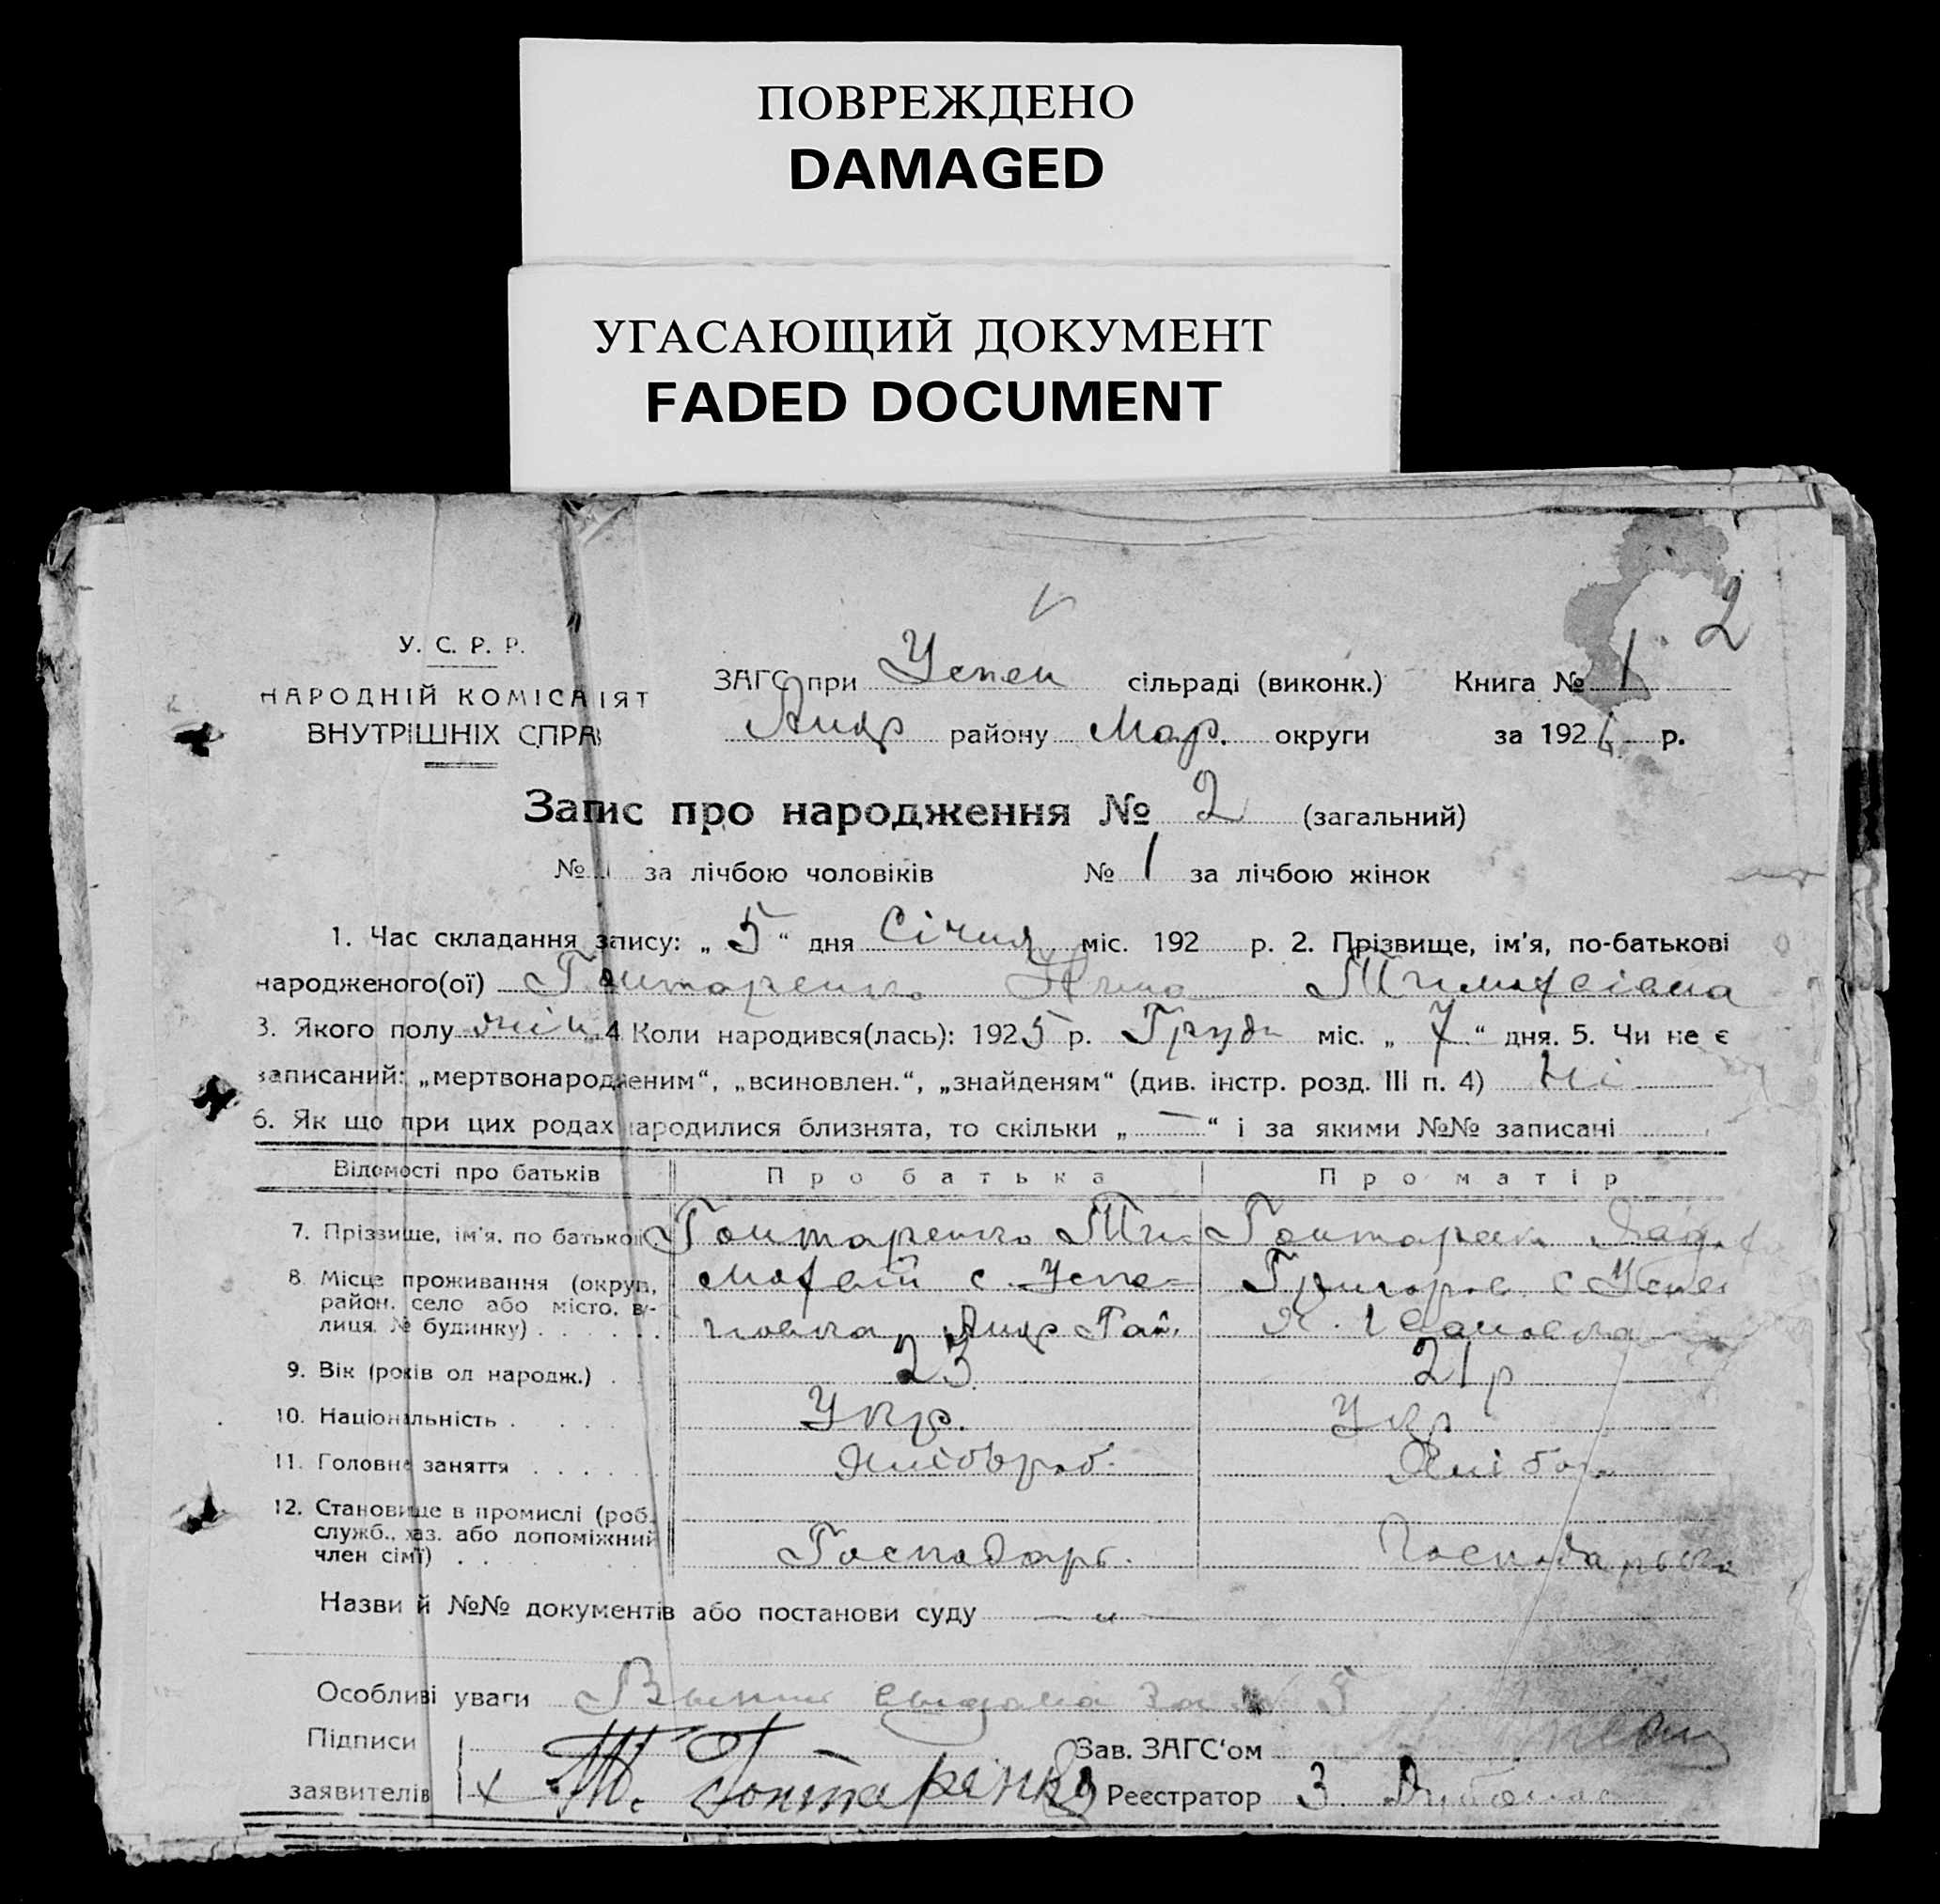 ПОВРЕЖДЕНО
DAMAGED
УГАСАЮЩИЙ ДОКУМЕНТ
FADED DOCUMENT
2
У. С. Р. Р.
НАРОДНІЙ КОМІСАРІЯТ
ВНУТРІШНІХ СПРАВ
ЗАГС при Успен сільраді (виконк.) Книга № 1
Андр району Мар. округи за 1926 р.
Запис про народження № 2 (загальний)
№ за лічбою чоловіків № 1 за лічбою жінок
1. Час складання запису: „ 5 “ дня Січня міс. 192 р. 2. Прізвище, ім'я, по-батькові
народженого(ої) Гонтаренко Тимофеівна
3. Якого полу жін. 4 Коли народився(лась): 1925 р. Грудн міс. „ 7 “ дня. 5. Чи не є
записаний: „мертвонародженим“, „всиновлен.“, „знайденям“ (див. інстр. розд. III п. 4) Ні
6. Як що при цих родах народилися близнята, то скільки „ — “ і за якими №№ записані
Відомості про батьків Про батька Про матір
7. Прізвище, ім'я, по батькові Гонтаренко Ти- Гонтарен
8. Місце проживання (округи, мофей с. Успе= Григоров. с Успен
район, село або місто, ву-
лиця, № будинку) новка Андр Рай.
9. Вік (років од народж.) 23 21 р
10. Національність Укр. Укр
11. Головне заняття Хлібороб. Хлібор
12. Становище в промислі (роб.
служб., хаз. або допоміжний
член сім'ї) Господарь. Господарька
Назви й №№ документів або постанови суду — „ —
Особливі уваги за № 5
Підписи
заявителів Т. Гонтаренко
Зав. ЗАГС'ом
Реєстратор З.